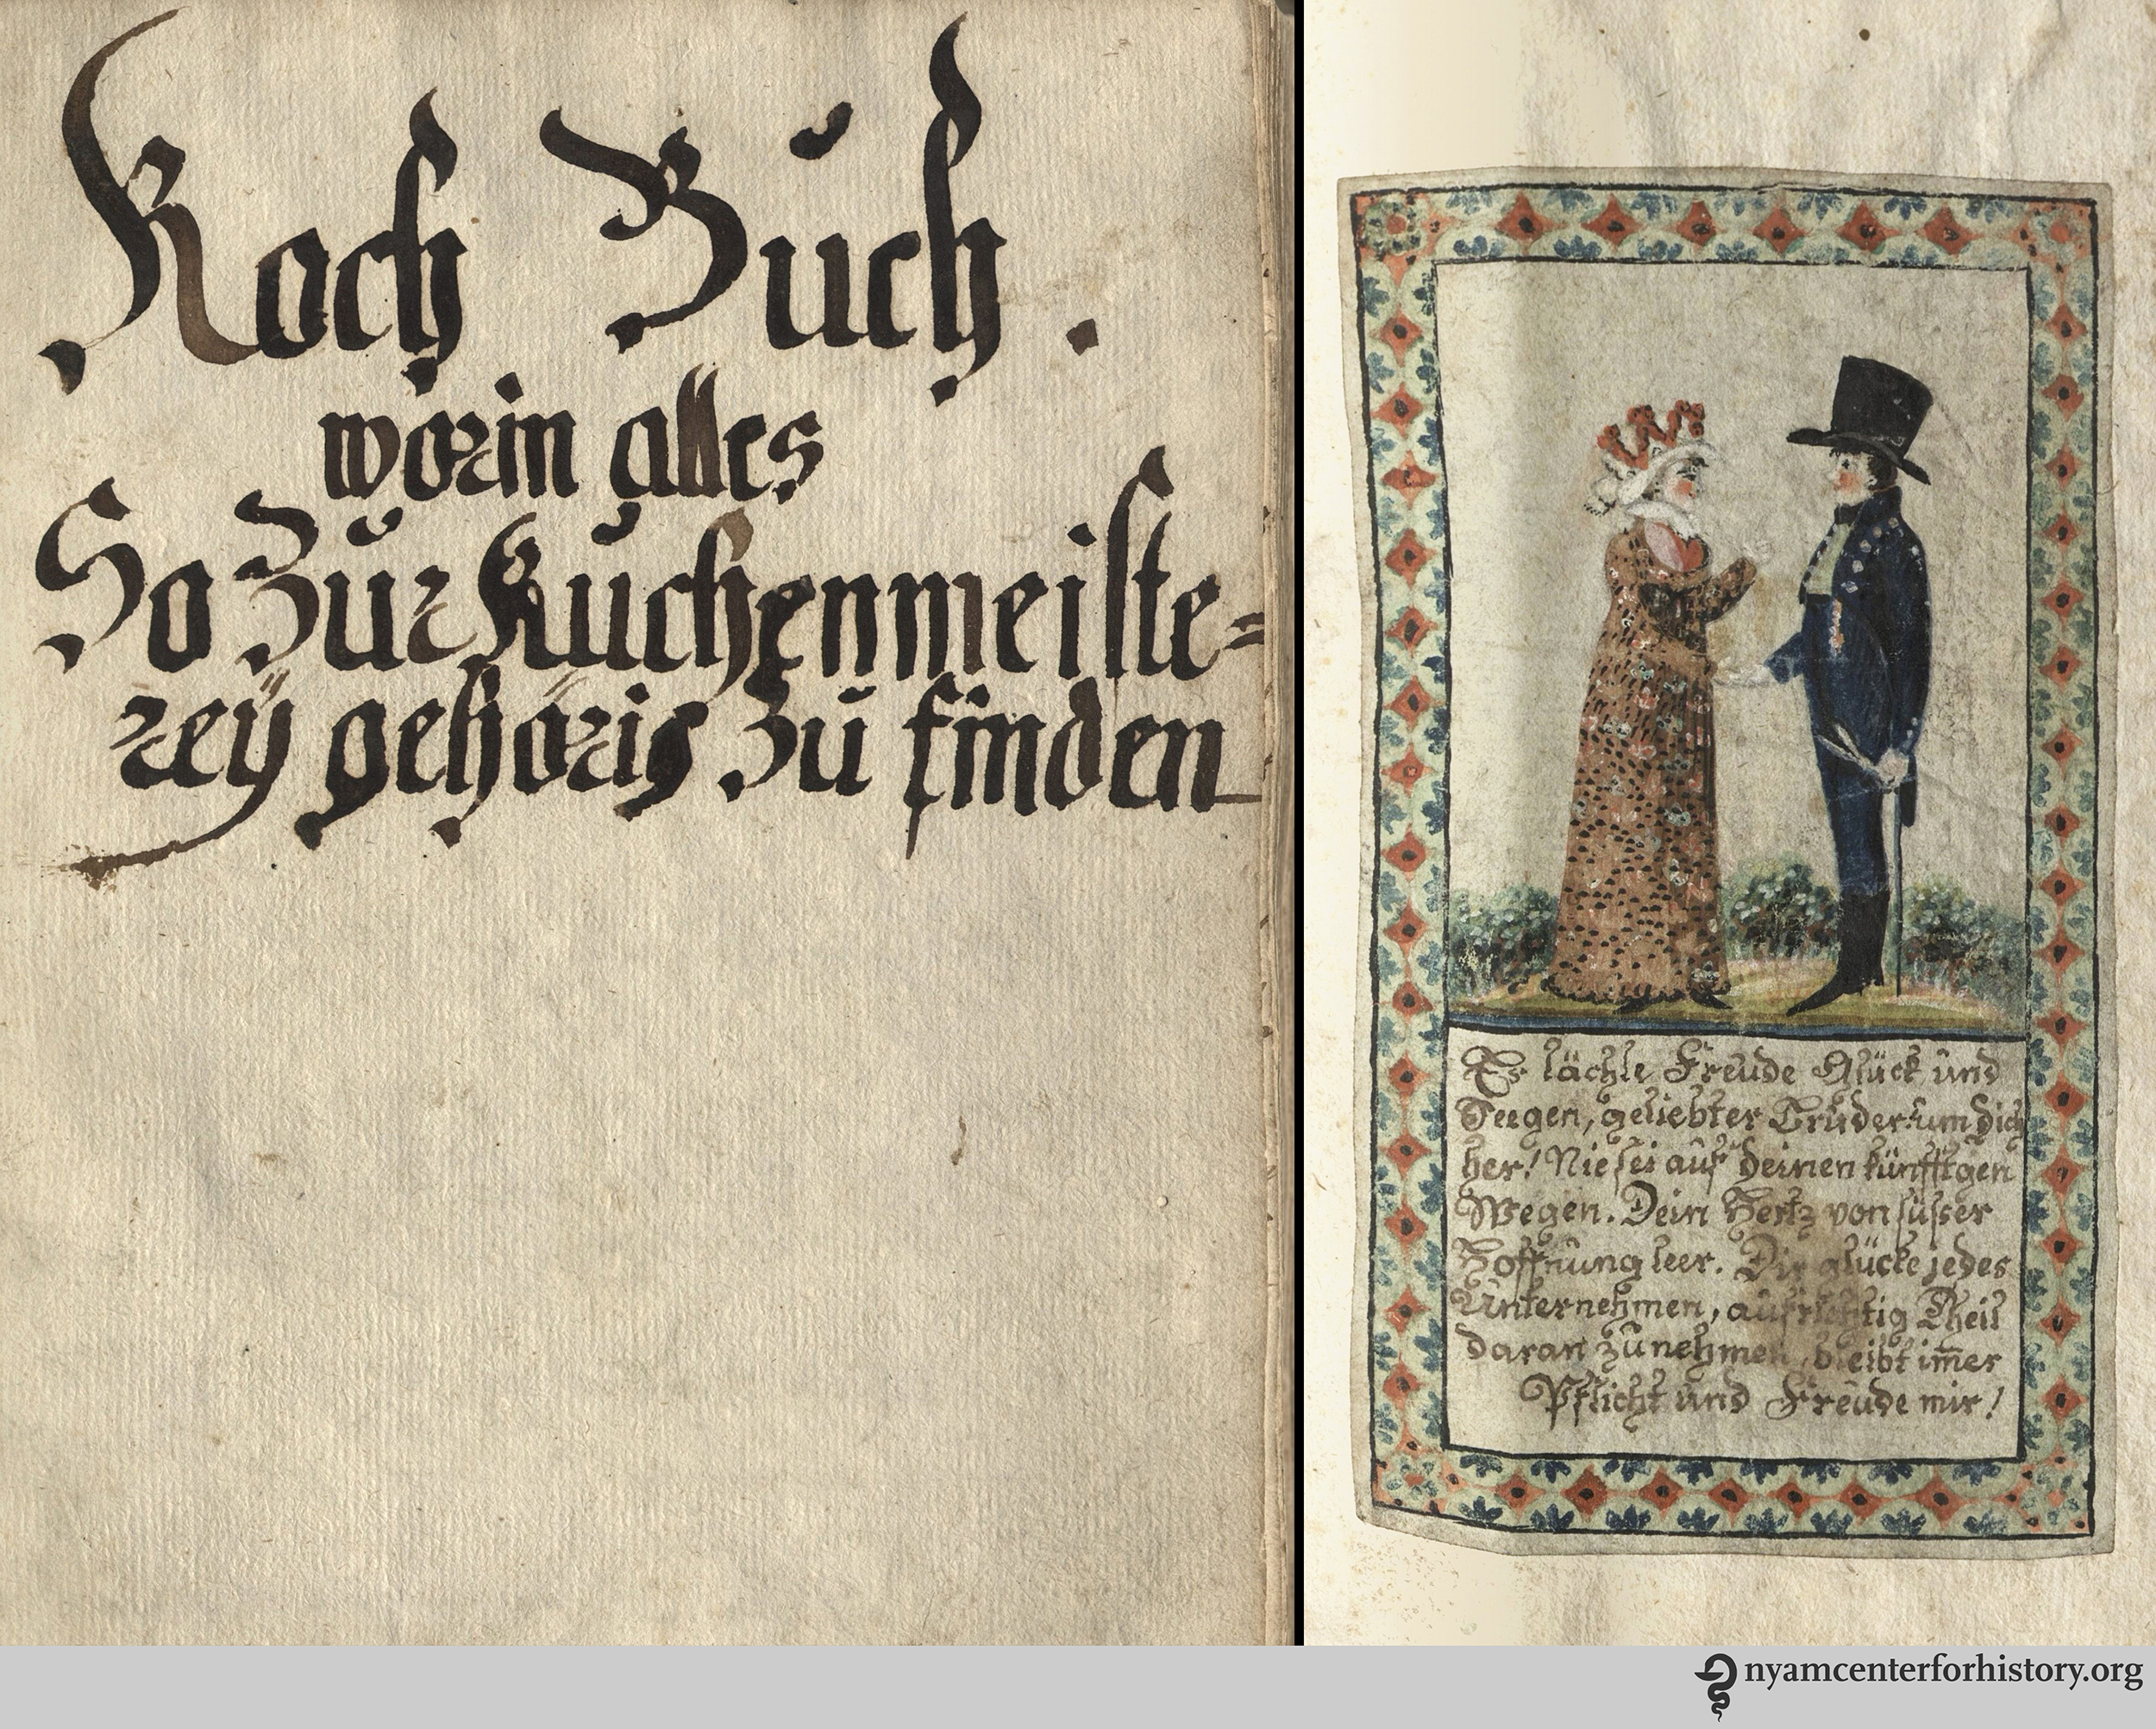 Koch Buch.
worin alles
So zur Kuchenmeiste=
reÿ gehöris zu finden
Es lächle Freude Glück und
Seegen, geliebter Bruder! um dich
her! Nie sei auf deinen künfftgen
Wegen. Dein Hertz von süsser
Hoffnung leer. Dir glücke jedes
Unternehmen, aufrichtig Theil
daran zu nehmen, bleibt im̅er
Pflicht und Freude mir!
nyamcenterforhistory.org